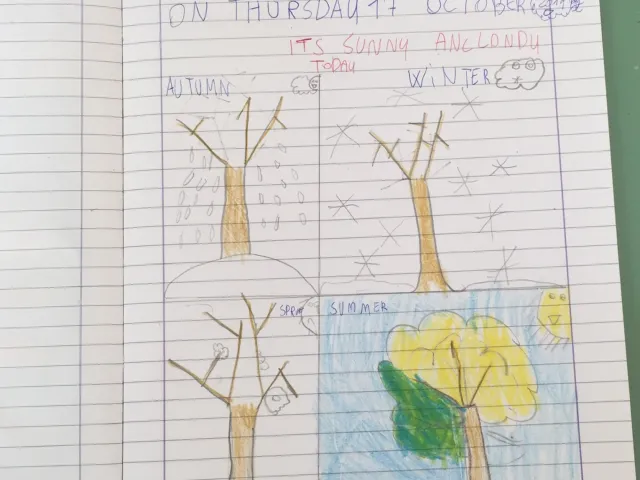 ON THURSDAY 17 OCTOBER
ITS SUNNY ANCLONDY
TODAY
AUTUMN
WINTER
SUMMER